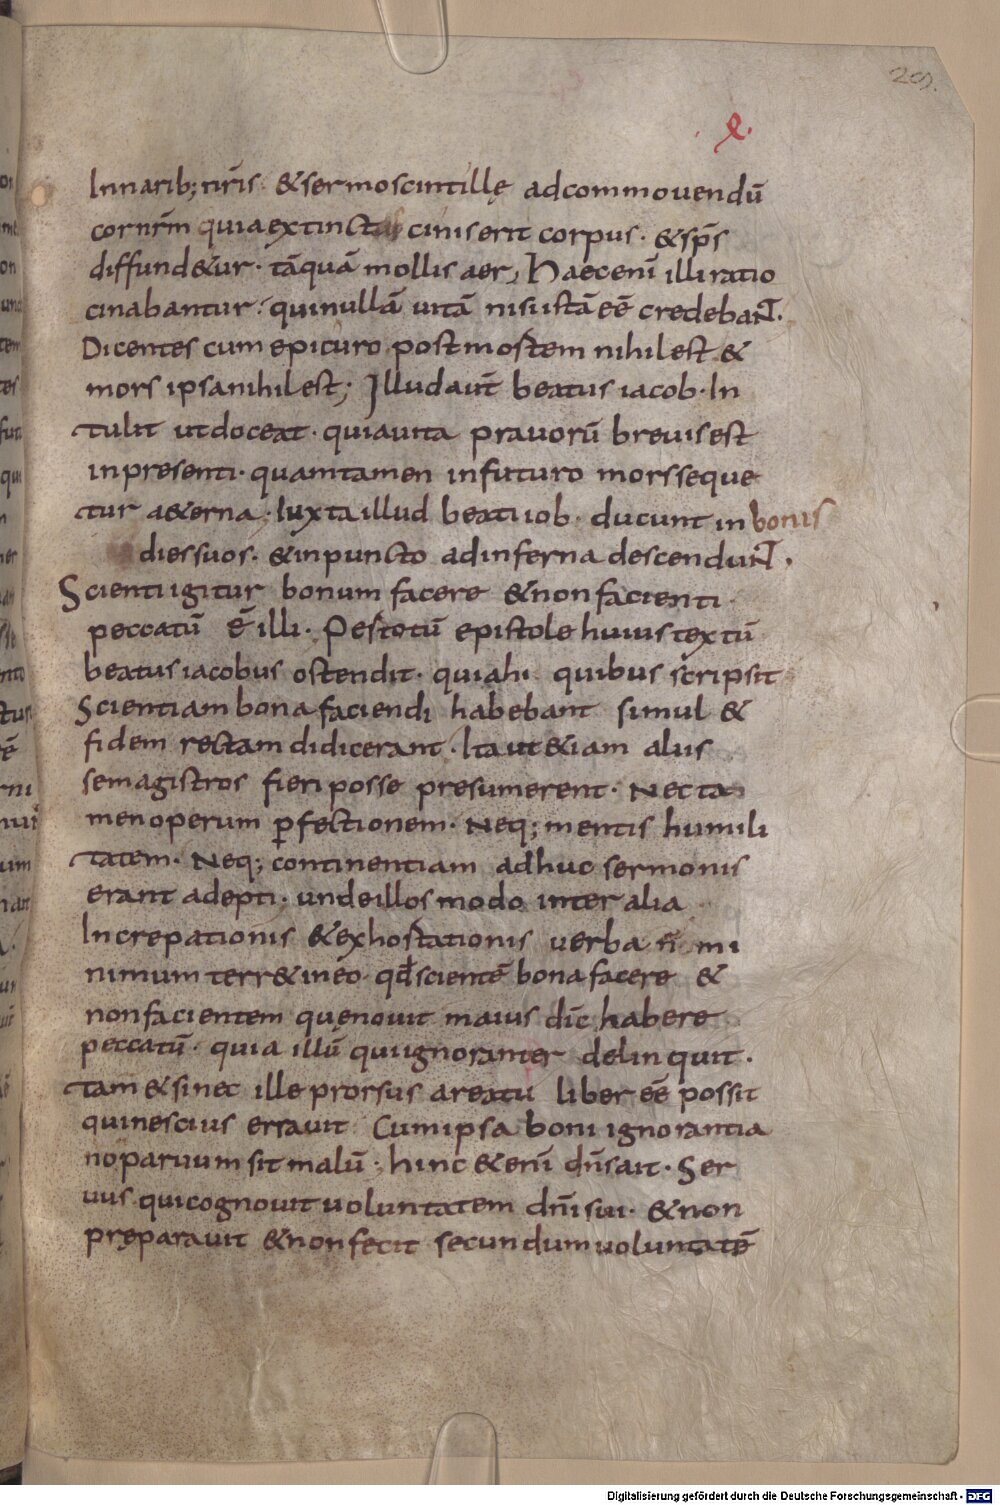 29.
x.
In narib; nr̄is. & sermo scintillę ad commouendū
cor nr̄m quia extincta cinis erit corpus. & sp̄s
diffund&ur. tāquā mollis aer, Haec eni̅ illi ratio
cinabantur. qui nullā uitā nisi istā eē credebaNT.
Dicentes cum epicuro post mortem nihil est &
mors ipsa nihil est; Illud aut̄ beatus iacob. In
tulit ut doceat. quia uita prauorū breuis est
in presenti. quam tamen in futuro mors seque
tur a&erna. Iuxta illud beati iob. ducunt in bonis
dies suos. & in puncto ad inferna descenduNT.
Scienti igitur bonum facere & non facienti.
peccatū ē illi. Per totū epistole huius textū
beatus iacobus ostendit. quia hi quibus scripsit
Scientiam bona faciendi habebant simul &
fidem rectam didicerant. Ita ut &iam aliis
se magistros fieri posse presumerent. Nec ta
men operum p̲fectionem. Neq; mentis humili
tatem. Neq; continentiam adhuc sermonis
erant adepti. unde illos modo inter alia
Increpationis & exhortationis uerba n̄ mi
nimum terr& in eo. qd̄ scientē bona facere &
non facientem que nouit maius dic̄ habere
peccatū. quia illū qui ignoranter delinquit.
tam&si nec ille prorsus a reatu liber eē possit
qui nescius errauit Cum ipsa boni ignorantia
nō paruum sit malū. hinc &eni̅ dn̄s ait. Ser
uus qui cognouit uoluntatem dn̄i sui. & non
pręparauit & non fecit secundum uoluntatē
Digitalisierung gefördert durch die Deutsche Forschungsgemeinschaft - DFG